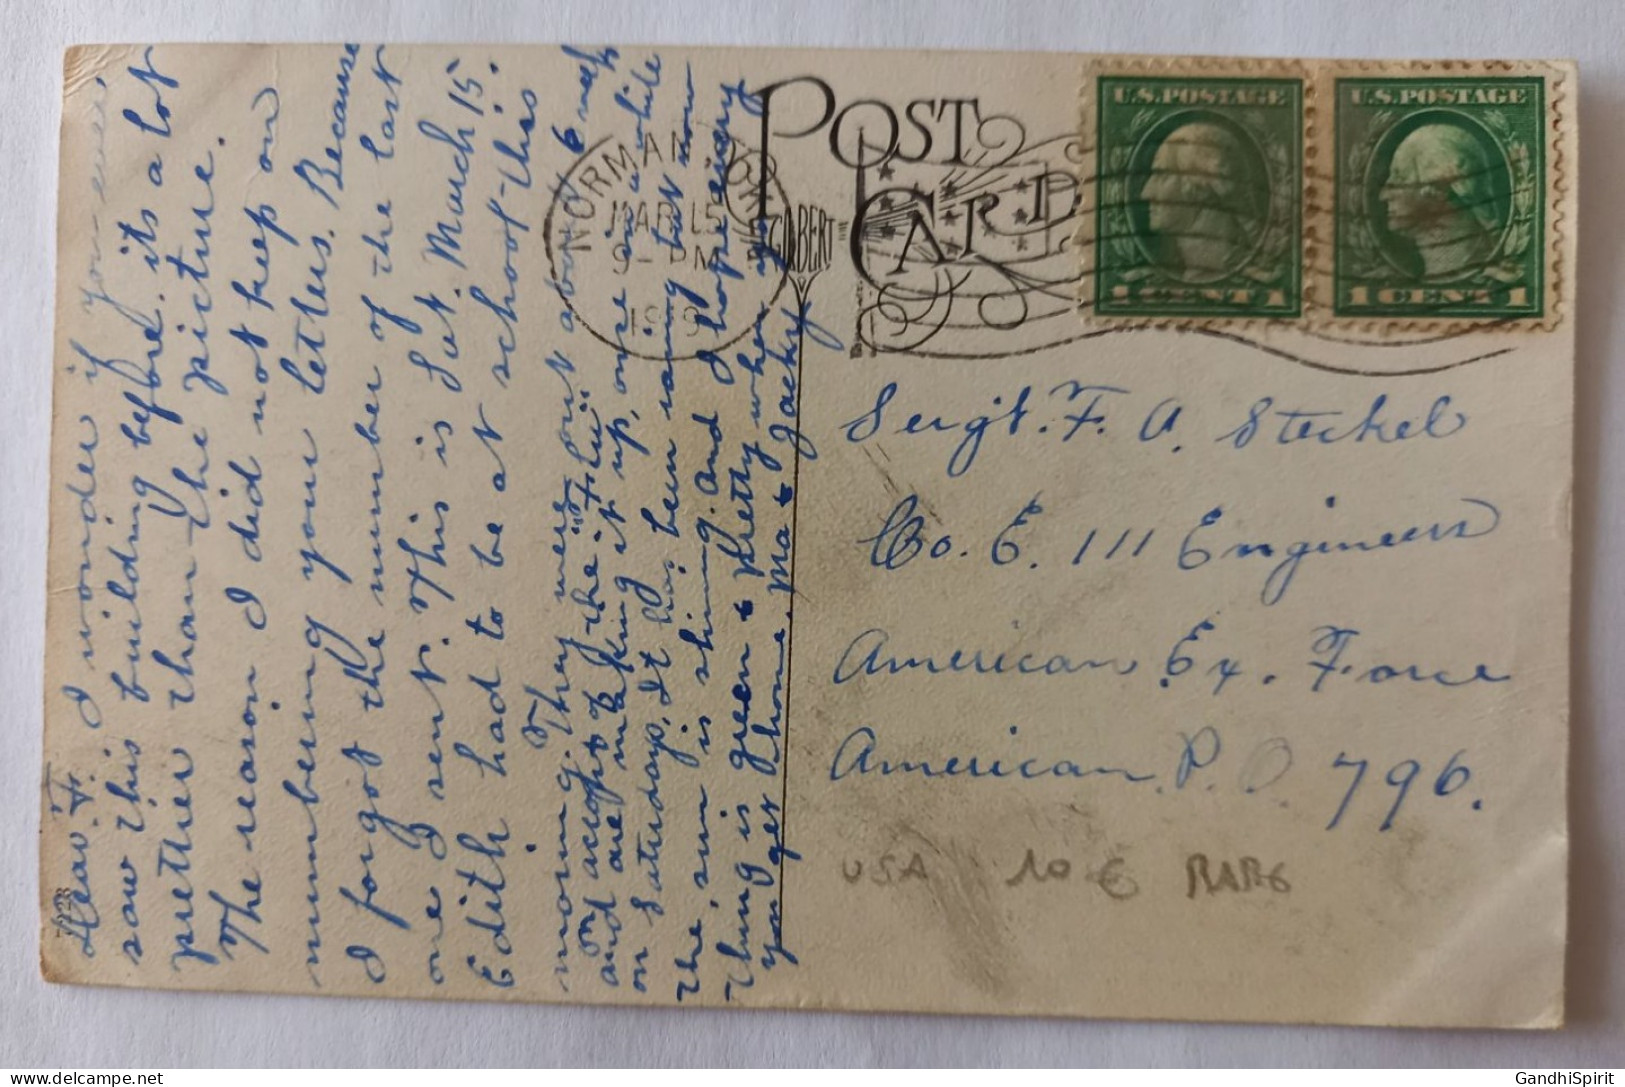 Dear F. I wonder if you ever
saw this building before. its a lot
prettier than the picture.
The reason I did not keep on
numbering your letters. Because
I forgot the number of the last
one I sent. This is Sat. March 15.
Edith had to be at school this
morning. They were out about 6 wks
on account of the "Flu"
and are making it up, one in a while
on Saturdays, It has been raining but now
the, sun is shining. And I hope every
thing is green & pretty when you
you get home. Ma & Jacky
POST CARD
NORMAN, OK
MAR 15
9 - PM
1919
U.S. POSTAGE
1 CENT 1
U.S. POSTAGE
1 CENT 1
Sergt. F. A. Steckel
Co. E. 111 Engineers
American Ex. Force
American P. O. 796.
USA 10 € RARE
GandhiSpirit